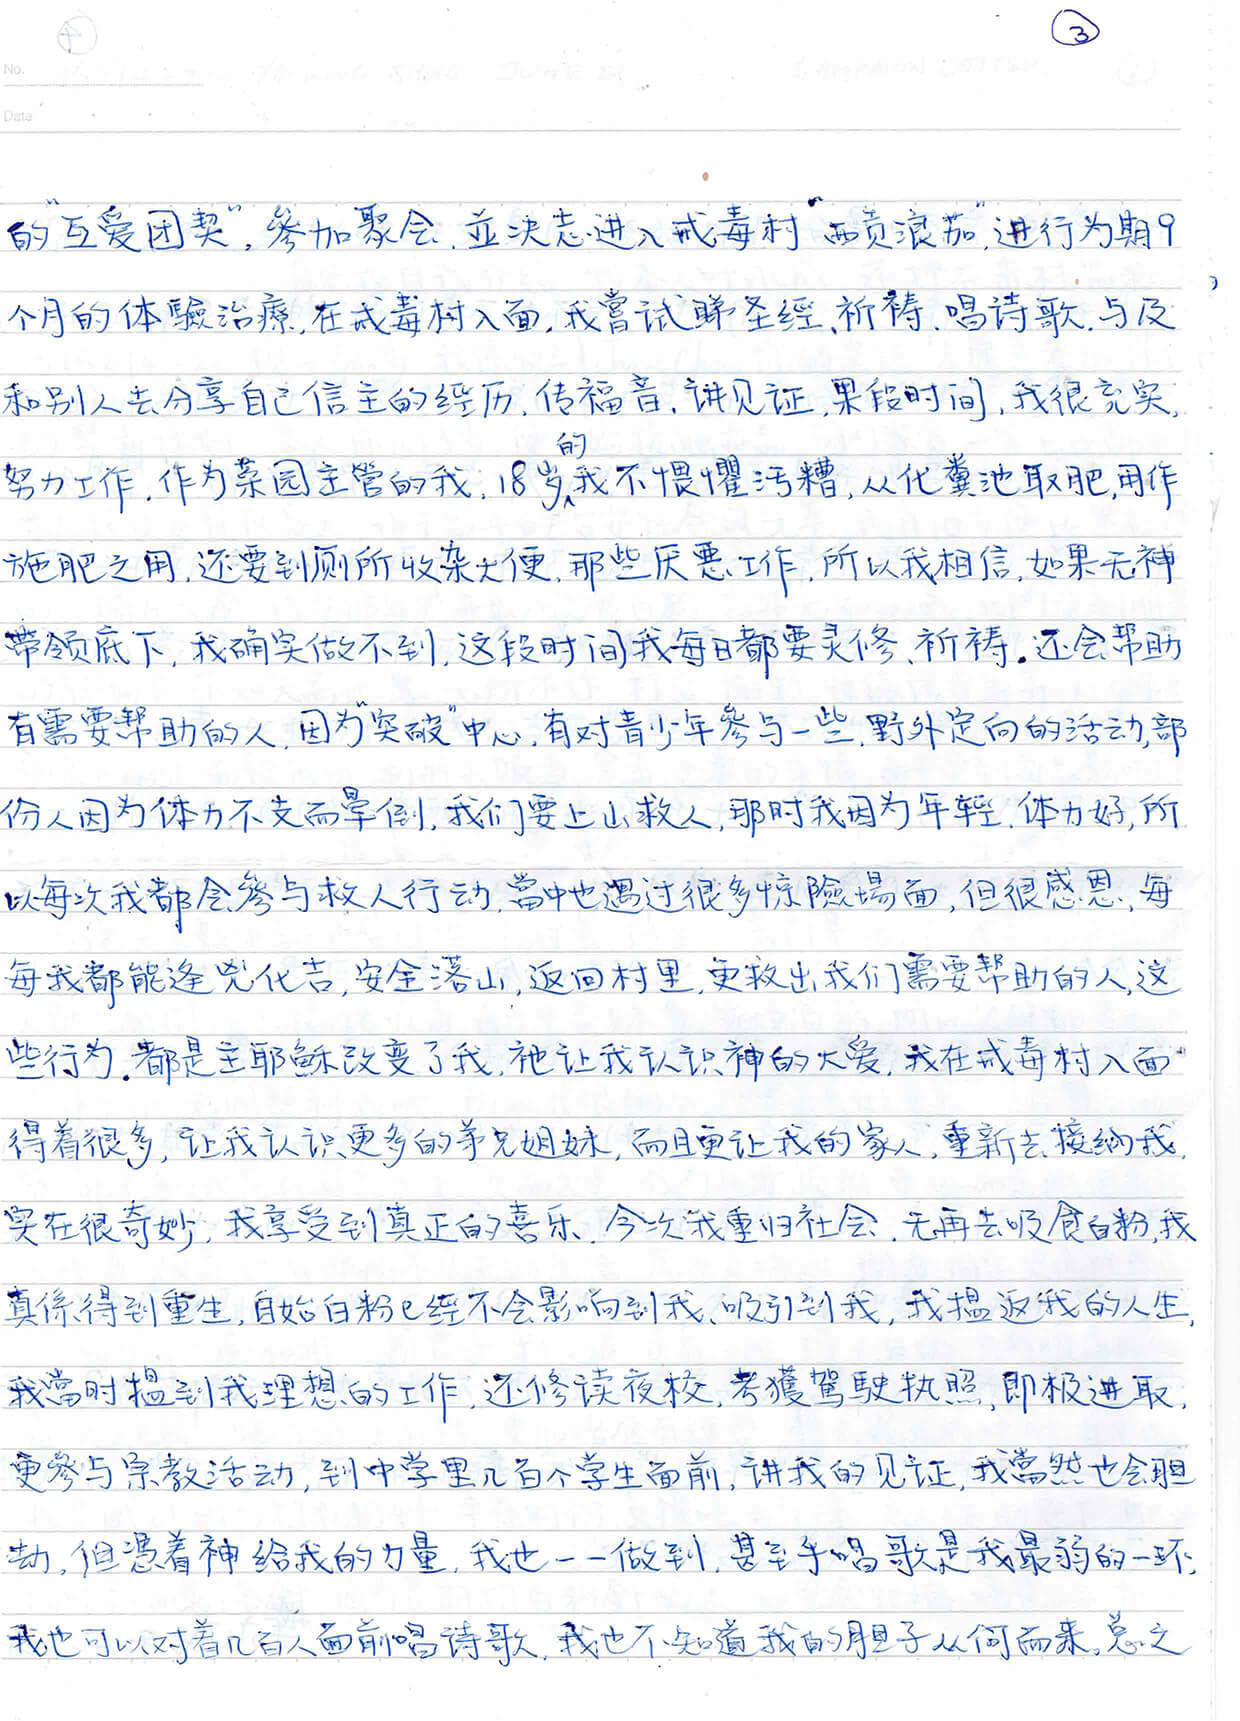 ③
No.
Data
的"互爱团契",參加聚会,並决志进入戒毒村"西贡浪茄",进行为期9
个月的体驗治療,在戒毒村入面,我嘗试睇圣經、祈祷、唱诗歌,与及
和别人去分享自己信主的经历,传福音,讲见证,果段时间,我很充实,
努力工作,作为菜园主管的我,18岁的我不惧懼污糟,从化糞池取肥,用作
施肥之用,还要到厕所收杂大便,那些厌悪工作,所以我相信,如果无神
带领底下,我确实做不到,这段时间我每日都要灵修、祈祷.还会帮助
有需要帮助的人,因为"突破"中心,有对青少年參与一些,野外定向的活动,部
份人因为体力不支而晕倒,我们要上山救人,那时我因为年轻,体力好,所
以每次我都会參与救人行动,當中也遇过很多惊險場面,但很感恩,每
每我都能逢兇化吉,安全落山,返回村里,更救出我们需要帮助的人,这
些行为.都是主耶穌改变了我,祂让我认识神的大爱,我在戒毒村入面
得着很多,让我认识更多的弟兄姐妹,而且更让我的家人,重新去接納我,
实在很奇妙,我享受到真正的喜乐,今次我重归社会,无再去吸食白粉,我
真係得到重生,自始白粉已经不会影响到我、吸引到我,我搵返我的人生,
我當时搵到我理想的工作,还修读夜校,考獲駕駛执照,即极进取,
更參与宗教活动,到中学里几百个学生面前,讲我的见证,我當然也会胆
劫,但憑着神给我的力量,我也一一做到,甚至乎唱歌是我最弱的一环,
我也可以对着几百人面前唱诗歌,我也不知道我的胆子从何而来,总之